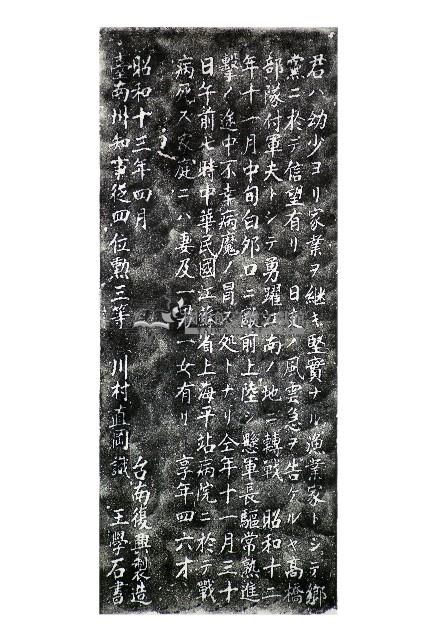 君ハ幼少ヨリ家業ヲ継キ堅實ナル漁業家トシテ鄉
黨ニ於テ信望有リ 日支ノ風雲急ヲ告ゲルヤ髙橋
部隊付軍夫トシテ勇躍江南ノ地ニ轉戰 昭和十二
年十一月中旬白茆口ニ敵前上陸シ懸軍長驅常熟進
擊ノ途中不幸病魔ノ冒ス処トナリ仝年十一月三十
日午前七時中華民國江蘇省上海平站病院ニ於テ戰
病死ス家庭ニハ妻及一男一女有リ 享年四六才
之
昭和十三年四月 台南復興製造
臺南州知事從四位勲三等 川村直岡識 王學石書